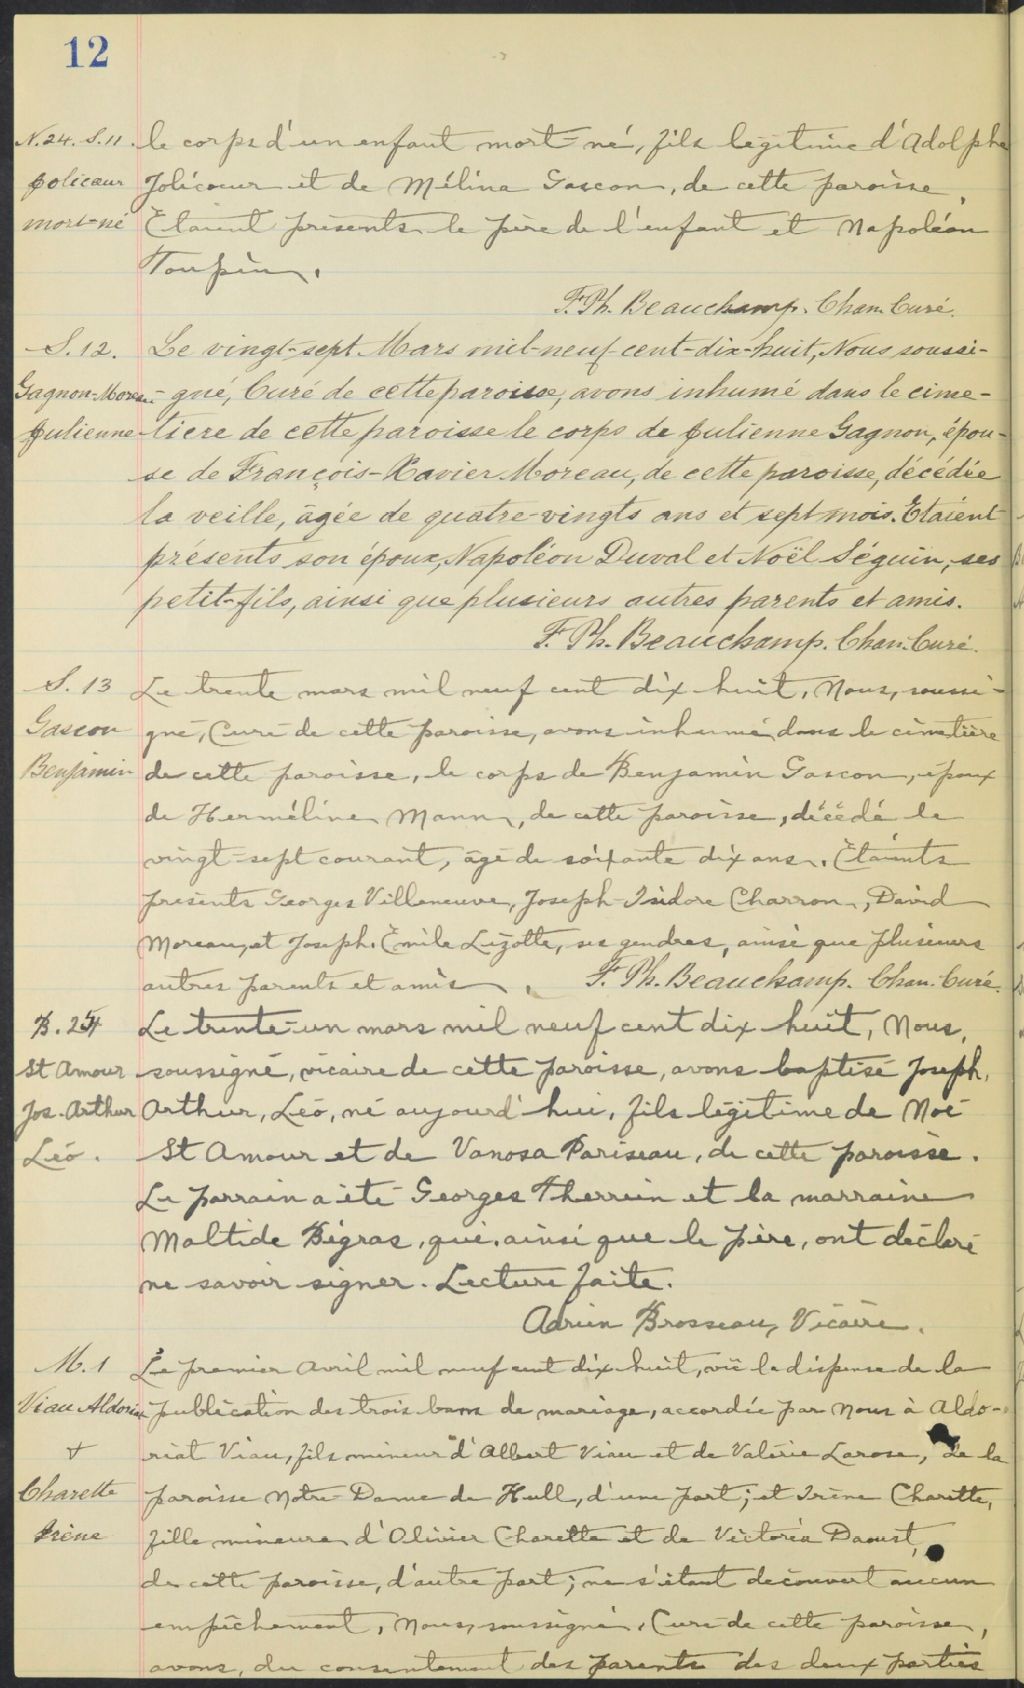 12
N.24. S.11. le corps d'un enfant mort-né, fils légitime d'Adolphe
Jolicoeur Jolicoeur et de Mélina Gascon, de cette paroisse,
mort-né Etaient présents le père de l'enfant et Napoléon
Toupin.
F. Ph. Beauchamp. Chan. Curé.
S. 12. Le vingt-sept Mars mil-neuf-cent-dix-huit, Nous soussi-
Gagnon-Moreau gné, Curé de cette paroisse, avons inhumé dans le cime-
Julienne tière de cette paroisse le corps de Julienne Gagnon, épou-
se de François-Xavier Moreau, de cette paroisse, décédée
la veille, âgée de quatre-vingts ans et sept mois. Etaient
présents son époux, Napoléon Duval et Noël Séguin, ses
petit-fils, ainsi que plusieurs autres parents et amis.
F. Ph. Beauchamp. Chan. Curé.
S. 13 Le trente mars mil neuf cent dix huit, Nous, soussi-
Gascon gné, Curé de cette paroisse, avons inhumé dans le cimetière
Benjamin de cette paroisse, le corps de Benjamin Gascon, époux
de Herméline Mann, de cette paroisse, décédé le
vingt-sept courant, âgé de soixante dix ans. Etaients
présents Georges Villeneuve, Joseph-Isidore Charron, David
Moreau, et Joseph. Emile Lizotte, ses gendres, ainsi que plusieurs
autres parents et amis. F. Ph. Beauchamp. Chan. Curé.
B. 25 Le trente-un mars mil neuf cent dix huit, Nous,
St Amour soussigné, vicaire de cette paroisse, avons baptisé Joseph,
Jos. Arthur Arthur, Léo, né aujourd'hui, fils légitime de Noé
Léo. St Amour et de Vanosa Pariseau, de cette paroisse.
Le parrain a été Georges Therrien et la marraine
Maltide Bigras, qui, ainsi que le père, ont déclaré
ne savoir signer. Lecture faite.
Adrien Brosseau, Vicaire.
M. 1 Le premier Avril mil neuf cent dix huit, vu la dispense de la
Viau Aldoria publication des trois bans de mariage, accordée par Nous à Aldo-
& riat Viau, fils mineur d'Albert Viau et de Valérie Larose, de la
Charette paroisse Notre Dame de Hull, d'une part; et Irène Charette,
Irène fille mineure d'Olivier Charette et de Victoria Daoust,
de cette paroisse, d'autre part; ne s'étant découvert aucun
empêchement, Nous, soussigné, Curé de cette paroisse,
avons, du consentement des parents des deux parties